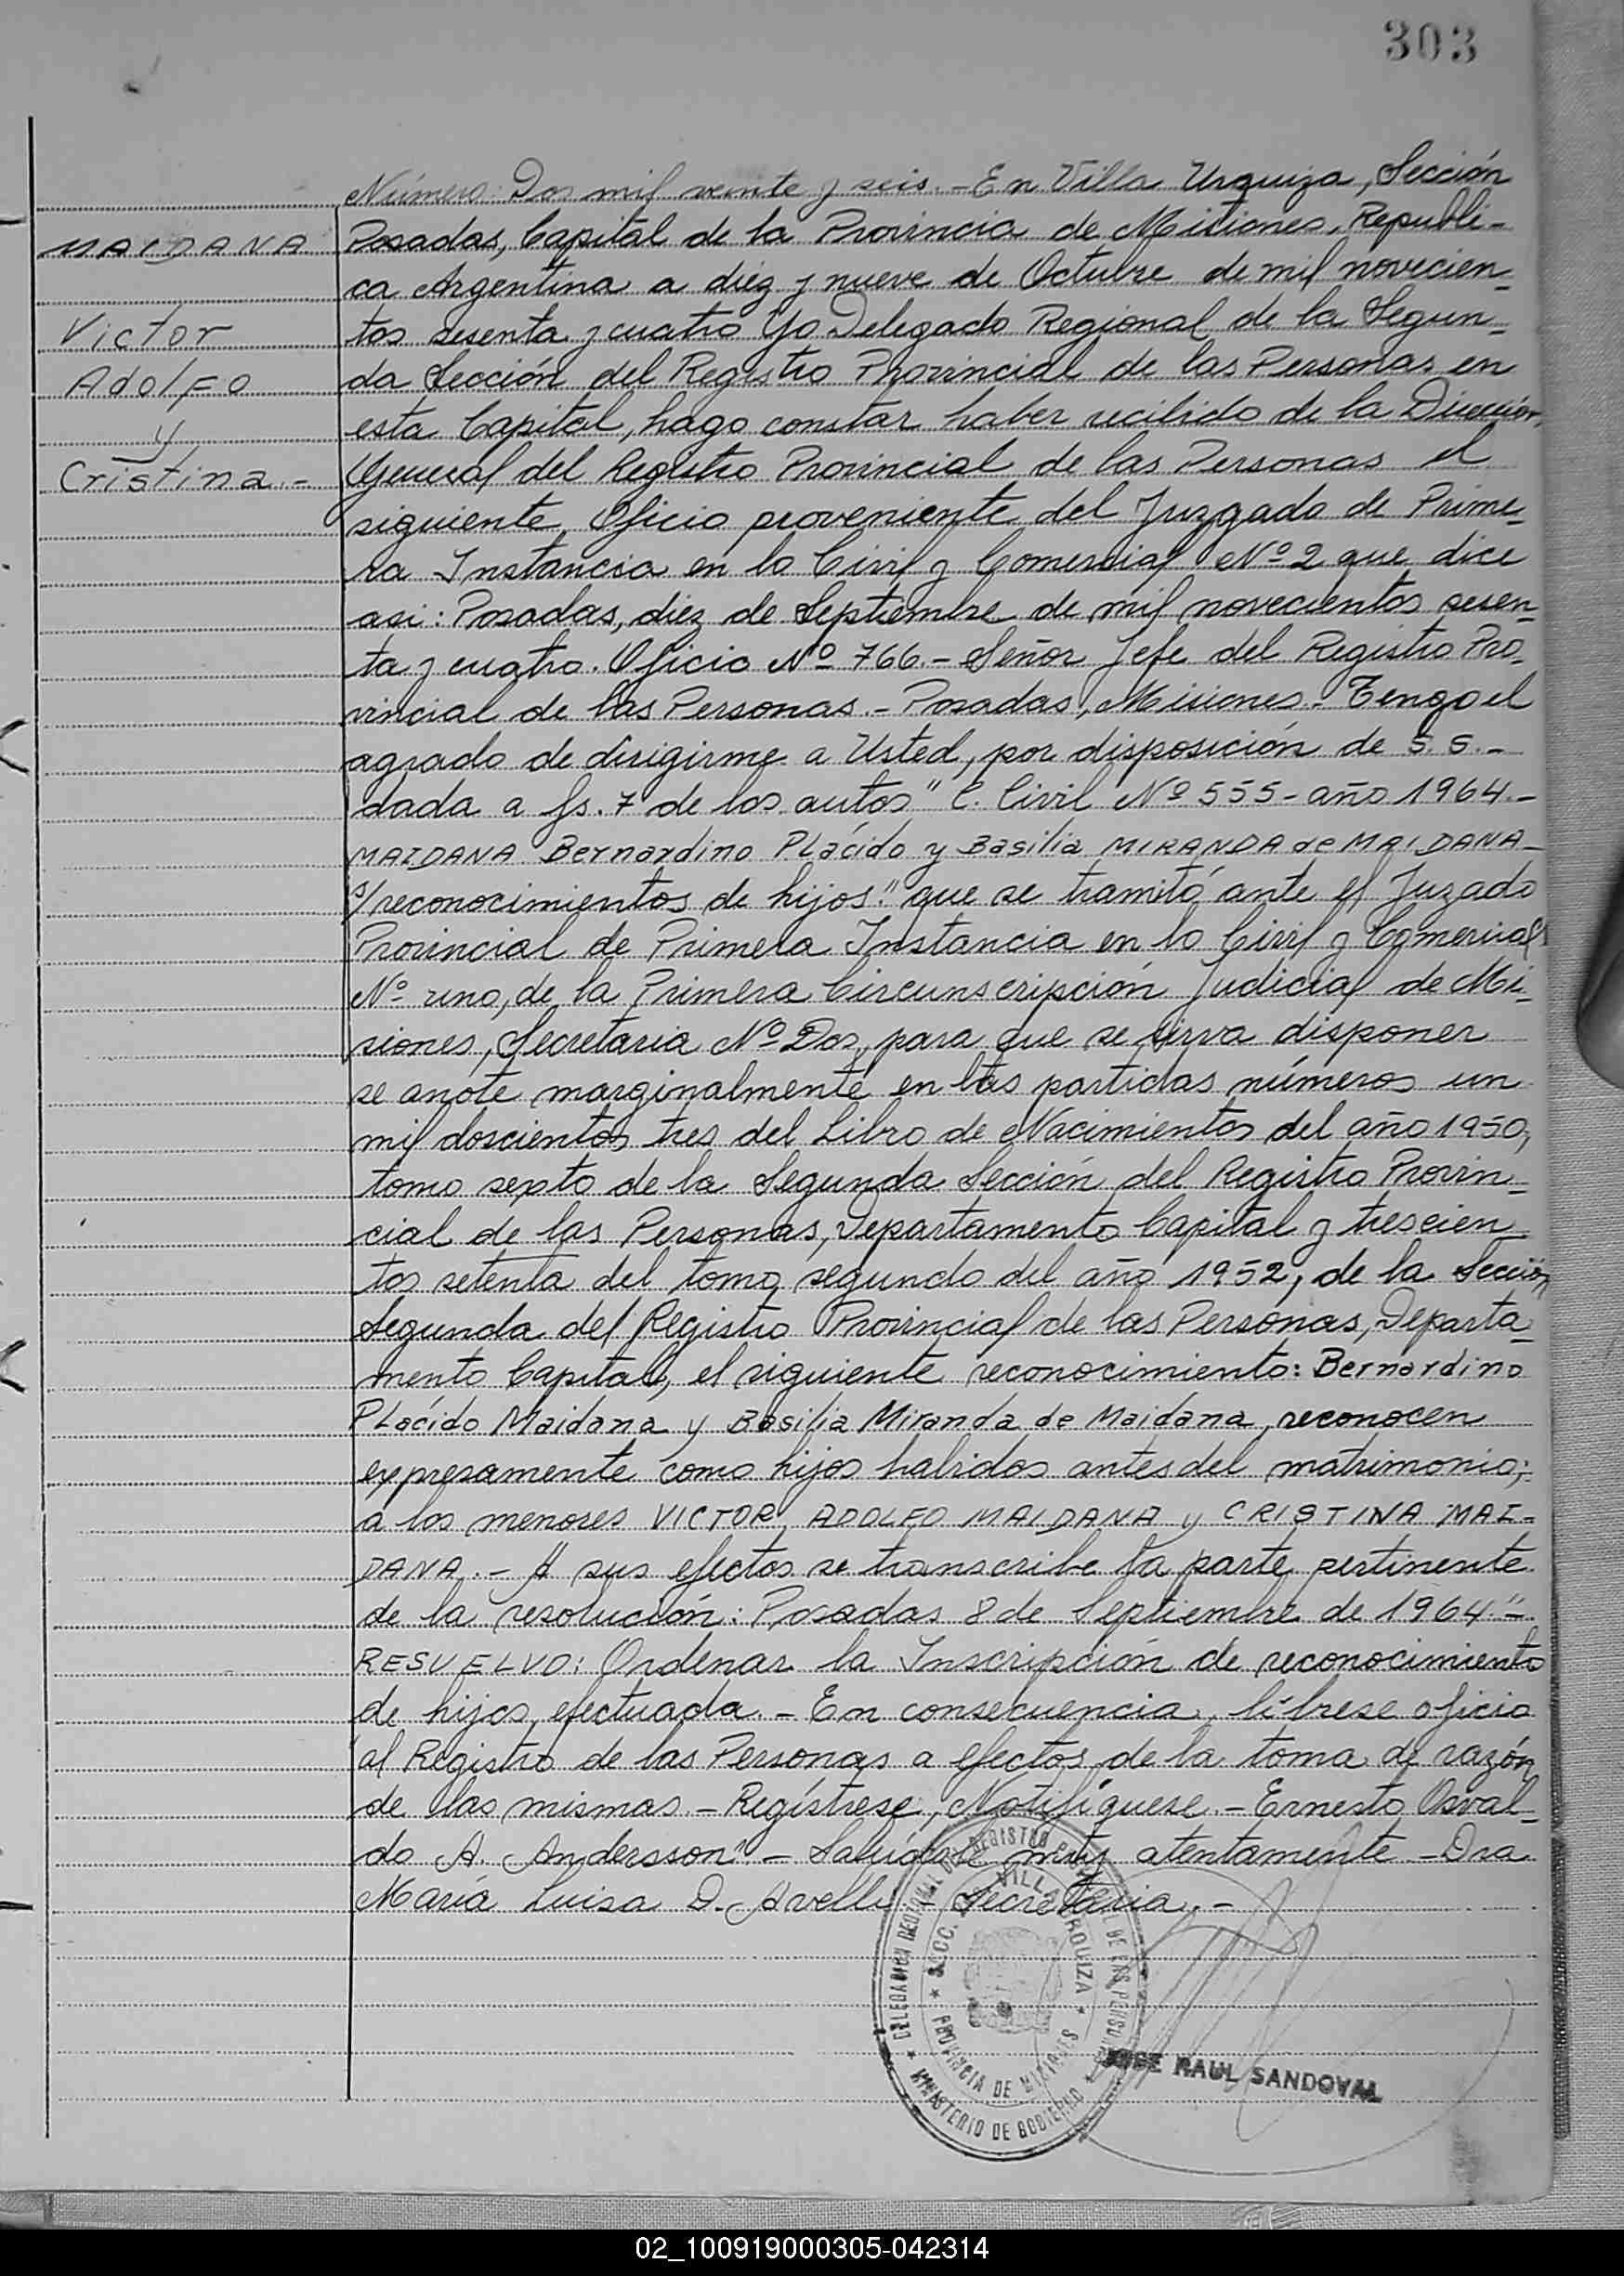 303
Número: Dos mil veinte y seis.-En Villa Urquiza, Sección
MAIDANA
Posadas, Capital de la Provincia de Misiones, Republi-
ca Argentina a diéz y nueve de Octubre de mil novecien-
Victor
tos sesenta y cuatro Yo Delegado Regional de la Segun-
Adolfo
da Sección del Registro Provincial de las Personas en
y
esta Capital, hago constar haber recibido de la Dirección
Cristina.-
General del Registro Provincial de las Personas el
siguiente Oficio proveniente del Juzgado de Prime-
ra Instancia en lo Civil y Comercial Nº2 que dice
asi: Posadas, diez de Septiembre de mil novecientos sesen-
ta y cuatro. Oficio Nº 766.- Señor Jefe del Registro Pro-
vincial de las Personas.- Posadas, Misiones.- Tengo el
agrado de dirigirme a Usted, por disposición de S.S.-
dada a fs. 7 de los autos "C. Civil Nº 555-año 1964.-
MAIDANA Bernardino Plácido y Basilia MIRANDA de MAIDANA-
s/reconocimientos de hijos." que se tramitó ante el Juzado
Provincial de Primera Instancia en lo Civil y Comercial
Nº uno, de la Primera Circunscripción Judicial de Mi-
siones, Secretaria Nº Dos, para que se sirva disponer
se anote marginalmente en las partidas números un
mil doscientos tres del Libro de Nacimientos del año 1950,
tomo septo de la Segunda Sección del Registro Provin-
cial de las Personas, Departamento Capital y trescien
tos setenta del tomo segundo del año 1952, de la Sección
Segunda del Registro Provincial de las Personas, Departa-
mento Capital, el siguiente reconocimiento: Bernardino
Plácido Maidana y Basilia Miranda de Maidana, reconocen
expresamente como hijos habidos antes del matrimonio;
a los menores VICTOR ADOLFO MAIDANA y CRISTINA MAI-
DANA.- A sus efectos se transcribe la parte pertinente
de la resolución: Posadas 8 de Septiembre de 1964."-
RESUELVO: Ordenar la Inscripción de reconocimiento
de hijos efectuada.- En consecuencia, líbrese oficio
al Registro de las Personas a efectos de la toma de razón
de las mismas.-Regístrese, Notifíquese.-Ernesto Osval-
do A. Andersson".- Salúdale muy atentamente -Dra.
María Luisa D. Avelli Secretaria.-
DELEGACION REGIONAL DEL REGISTRO PROVINCIAL DE LAS PERSONAS
SECC. VILLA URQUIZA
PROVINCIA DE MISIONES
MINISTERIO DE GOBIERNO
JOSE RAUL SANDOVAL
02_100919000305-042314